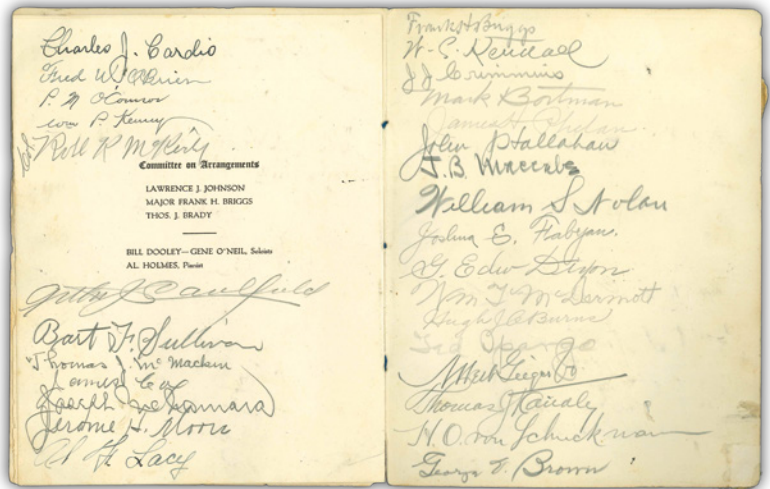 Charles J. Cardio
Fred W. O'Brien
P. M. O'Connor
Wm P. Kenny
Committee on Arrangements
LAWRENCE J. JOHNSON
MAJOR FRANK H. BRIGGS
THOS. J. BRADY
BILL DOOLEY—GENE O'NEIL, Soloists
AL. HOLMES, Pianist
J. Caulfield
Bart F. Sullivan
Thomas J. McMackin
James Coy
Joseph McNamara
Jerome H. Moore
Al F. Lacy
Frank H Briggs
W. C. Kendall
J J Crimmins
Mark Bortman
James H. Phelan
John P Hallahan
J. B. Maccabe
William S Nolan
Joshua E. Fabyan.
G. Edw Dixon
Wm T McDermott
Hugh J. Burns
Ted
Albert Geiger Jr
Thomas J
H. O. von Schuckmann
George E. Brown